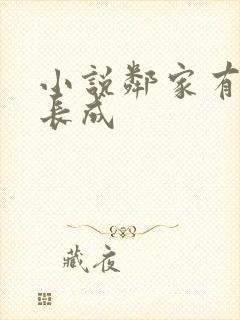 小說鄰家有
長成
藏夜